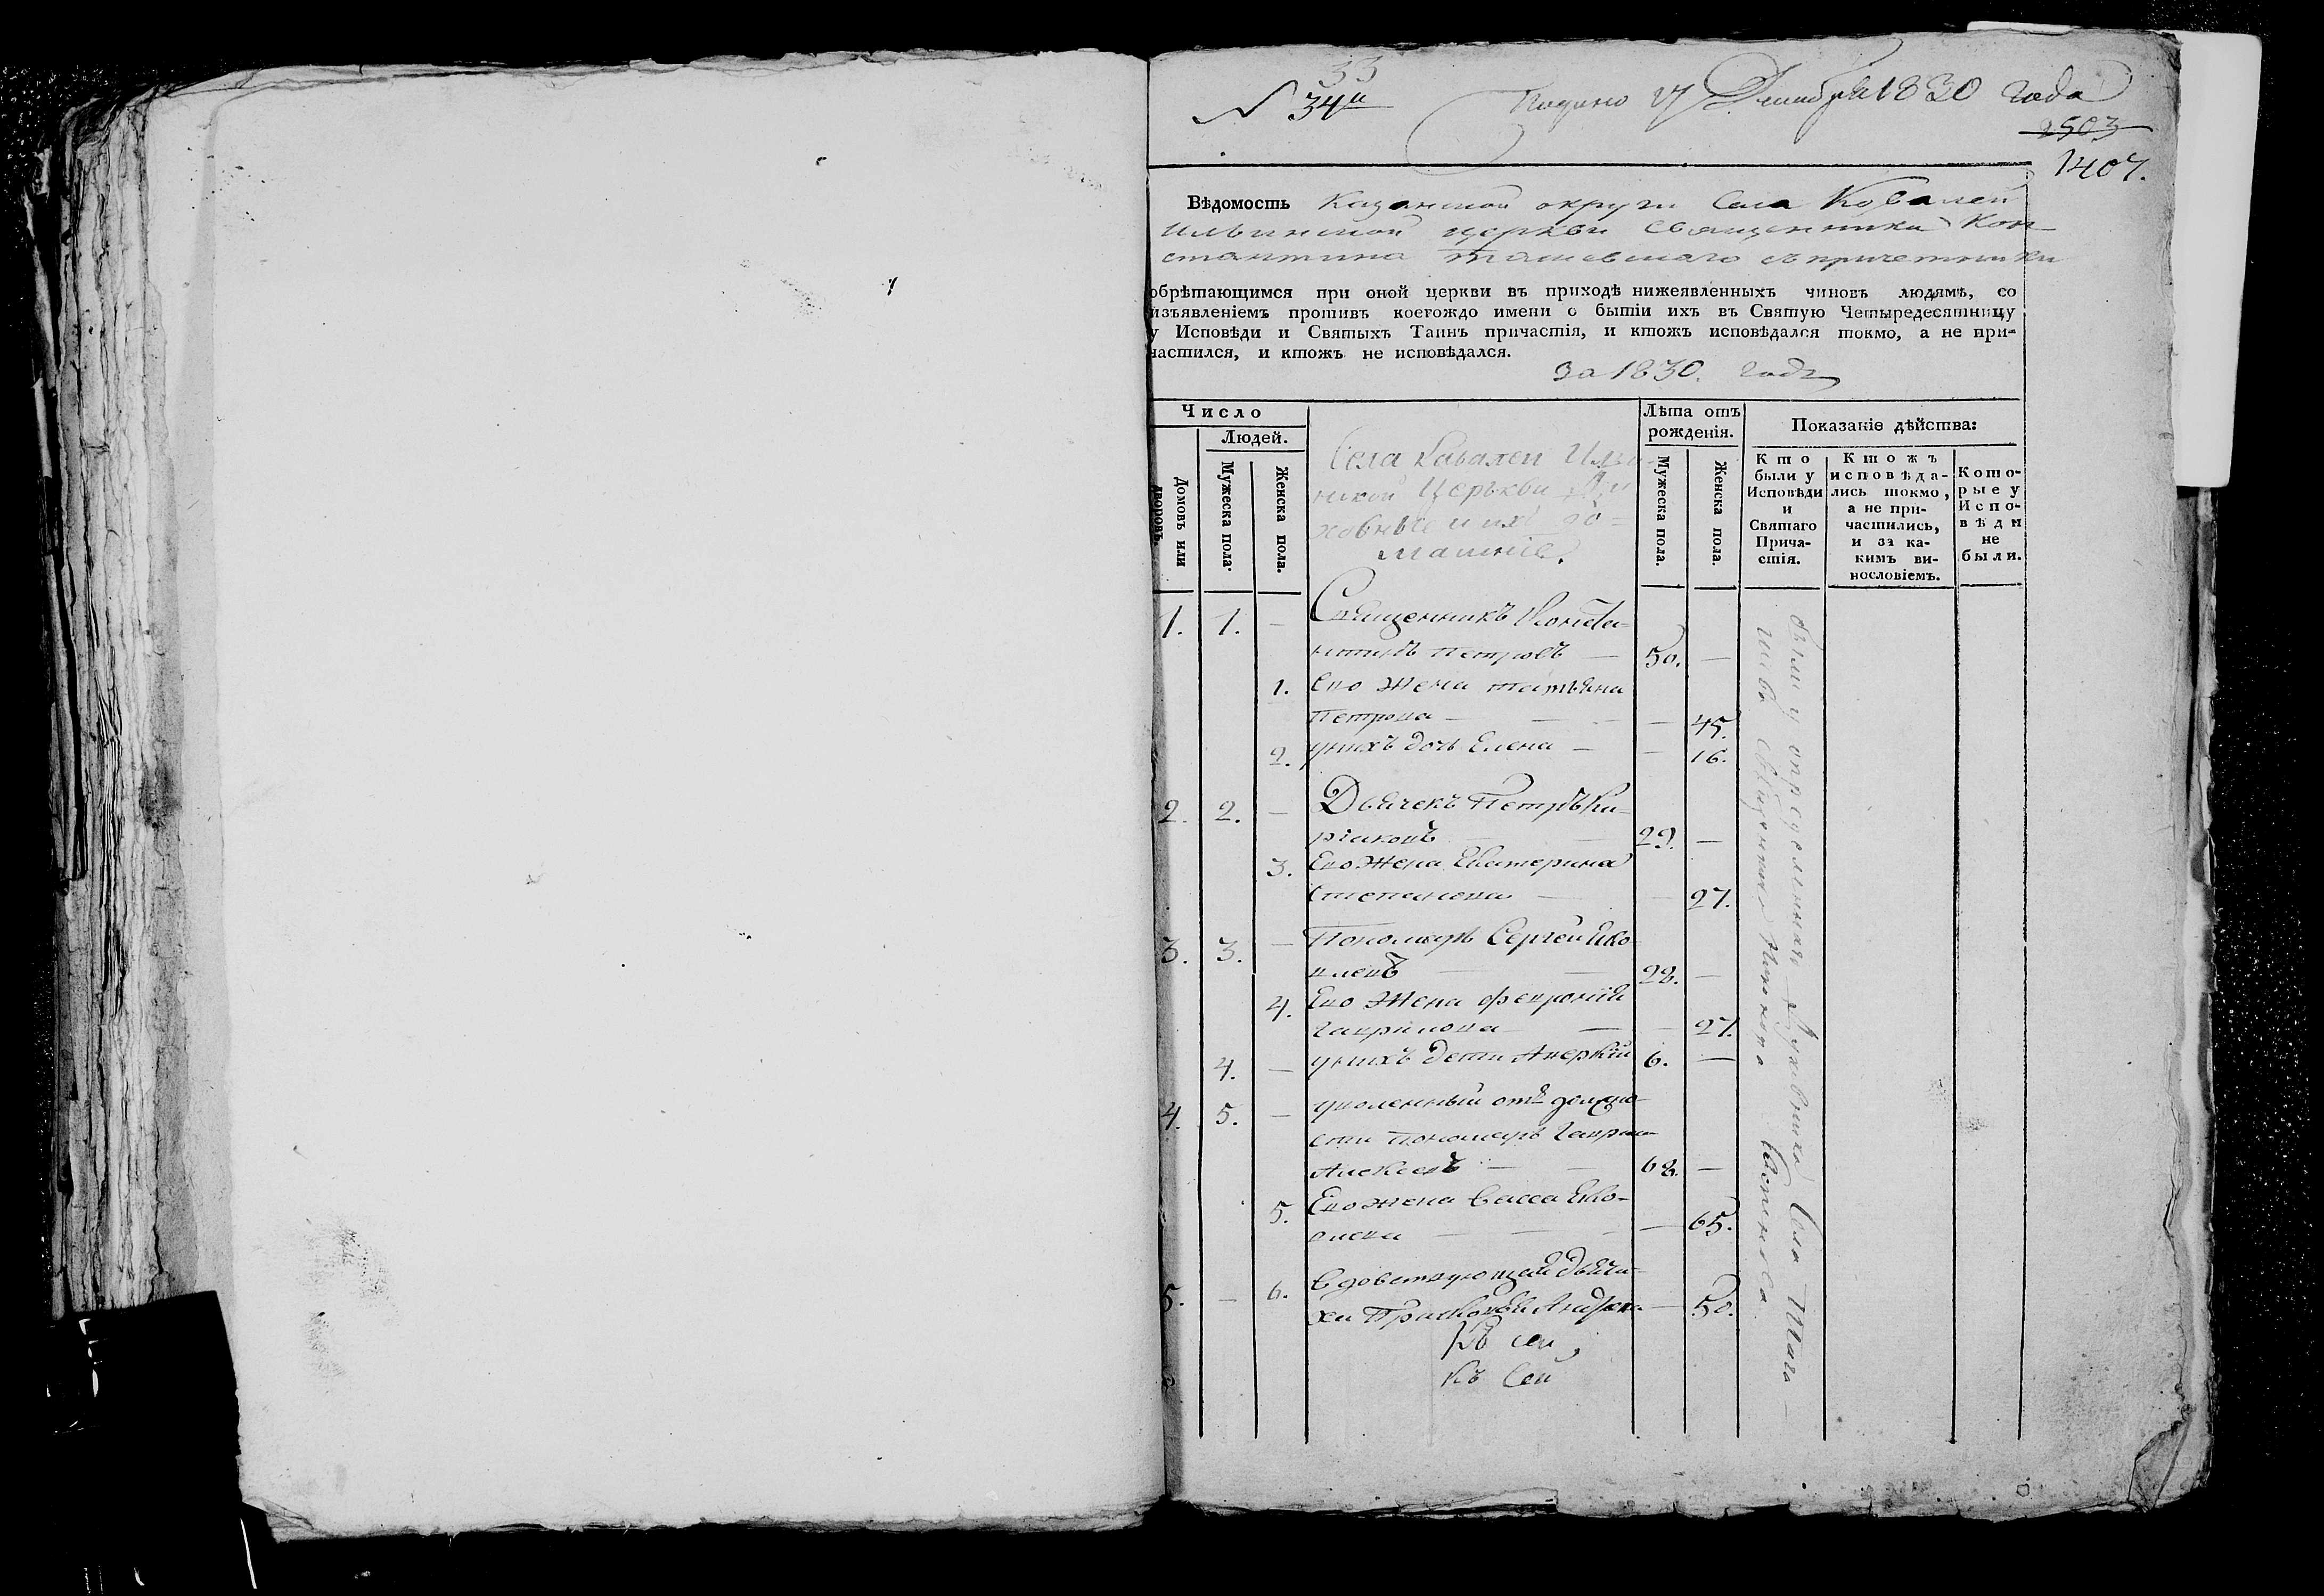 33
N 34й
Подано 17 Декабря 1830 года
2503
1407.
Вѣдомость Казанской округи Села Ковалей
Ильинской церкви Священника Кон-
стантина съ причетники
обрѣтающимся при оной церкви въ приходѣ нижеявленныхъ чиновъ людямъ, со
изъявленіемъ противъ коегождо имени о бытіи ихъ въ Святую Четыредесятницу
у Исповѣди и Святыхъ Таинъ причастія, и ктожъ исповѣдался токмо, а не при-
частился, и ктожъ не исповѣдался.
за 1830. годъ
Число
Людей.
Домовъ или дворовъ.
Мужеска пола.
Женска пола.
Села Кавалей Ильи-
нской Церькви Ду
ховныя и ихъ до-
машніе.
Лѣта отъ
рожденія.
Мужеска пола.
Женска пола.
Показаніе дѣйства:
Кто
были у
Исповѣди
и
Святаго
Прича-
стія.
Ктожъ
исповѣда-
лись токмо,
а не при-
частились,
и за ка-
кимъ ви-
нословіемъ.
Кото-
рые у
Испо-
вѣди
не
были.
1. 1. — Священникъ Конста-
нтинъ Петровъ — 50. —
1. Его жена татьяна
Петрова — — 45.
2. у нихъ дочь Елена — — 16.
2. 2. — Дьячекъ Петръ Ки-
ріаковъ 29. —
3. Его жена Екатерина
Степанова — — 27.
3. 3. — Пономарь Сергей Яко
влевъ — 28. —
4. Его жена феврониія
Гаврилова — — 27.
4. — у нихъ дети Аверкій 6. —
4. 5. — уволенный отъ должно-
сти пономарь Гаврила
Алексеевъ — 68. —
5. Его жена Васса Яко-
влева — — 65.
5. — 6. Вдовствующая дьячи-
ха Прасковья Андрѣева — 50.
къ сей
къ Сей
были у определеннаго Духовника Села